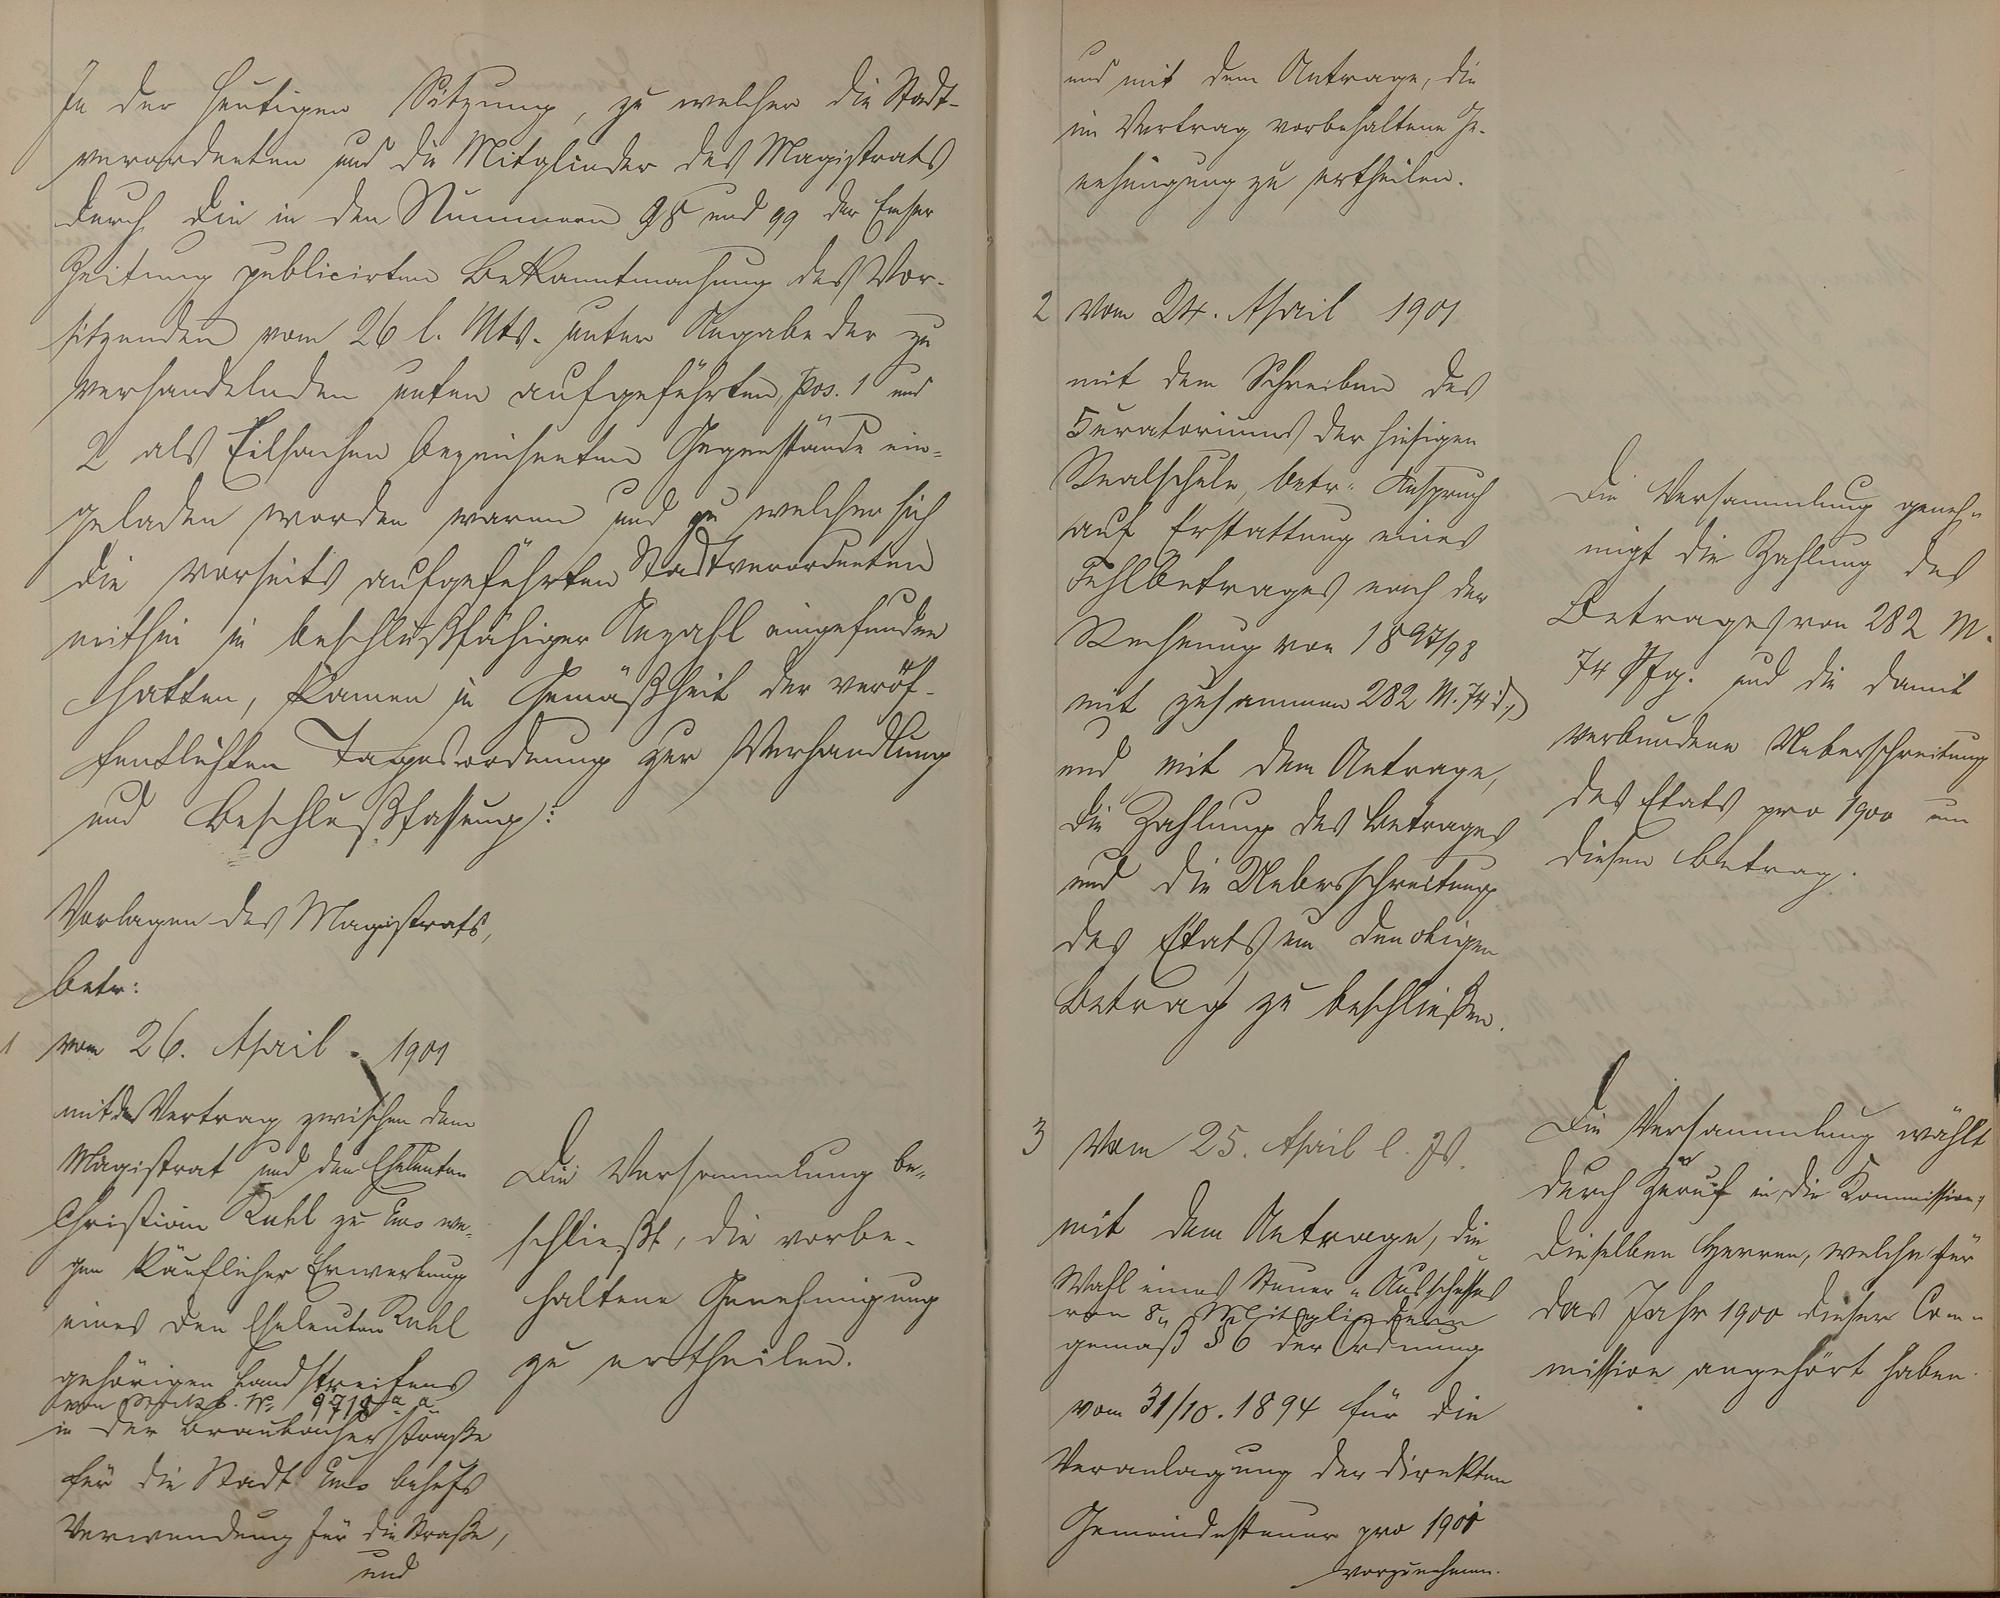 In der heutigen Sitzung, zu welcher die Stadt-
verordneten und die Mitglieder des Magistrats
durch die in den Nummern 98 und 99 der Emser
Zeitung publicirten Bekanntmachung des Vor-
sitzenden vom 26 l. Mts. unter Angabe der zu
verhandelnden unten aufgeführten, pos. 1 und
2 als Eilsachen bezeichneten Gegenstände ein-
geladen worden waren und zu welcher sich
die vorseits aufgeführten Stadtverordneten
mithin in beschlußfähiger Anzahl eingefunden
hatten, kamen in Gemäßheit der veröf-
fentlichten Tagesordnung zur Verhandlung
und Beschlußfassung:
Vorlagen des Magistrats,
betr:
1 vom 26. April 1901
mit dem Vertrag zwischen dem
Magistrat und den Eheleuten
Christian Kuhl zu Ems we-
gen käuflicher Erwerbung
eines den Eheleuten Kuhl
gehörigen Landstreifens
von
in der Braubacherstraße
für die Stadt Ems behufs
Verwendung für die Straße,
und
Die Versammlung be-
schließt, die vorbe-
haltene Genehmigung
zu ertheilen.
und mit dem Antrage, die
im Vertrag vorbehaltene Ge-
nehmigung zu ertheilen.
2 vom 24. April 1901
mit dem Schreiben des
Kuratoriums der hiesigen
Realschule, betr. Anspruch
auf Erstattung eines
Fehlbetrages nach der
Rechnung von 1897/98
mit zusammen 282 M. 74 d.,
und mit dem Antrage,
die Zahlung des Betrages
und die Ueberschreitung
des Etats um den obigen
Betrag zu beschließen.
Die Versammlung geneh-
migt die Zahlung des
Betrages von 282 M.
74 Pfg. und die damit
verbundene Ueberschreitung
des Etats pro 1900 um
diesen Betrag.
3 Vom 25. April l. Js.
mit dem Antrage, die
Wahl eines Steuer-Ausschusses
von 8 Mitgliedern
gemäß § 6 der Ordnung
vom 31/10. 1894 für die
Veranlagung der direkten
Gemeindesteuer pro 1901
vorzunehmen.
Die Versammlung wählt
durch Zuruf in die Kommission
dieselben Herren, welche für
das Jahr 1900 dieser Com-
mission angehört haben.